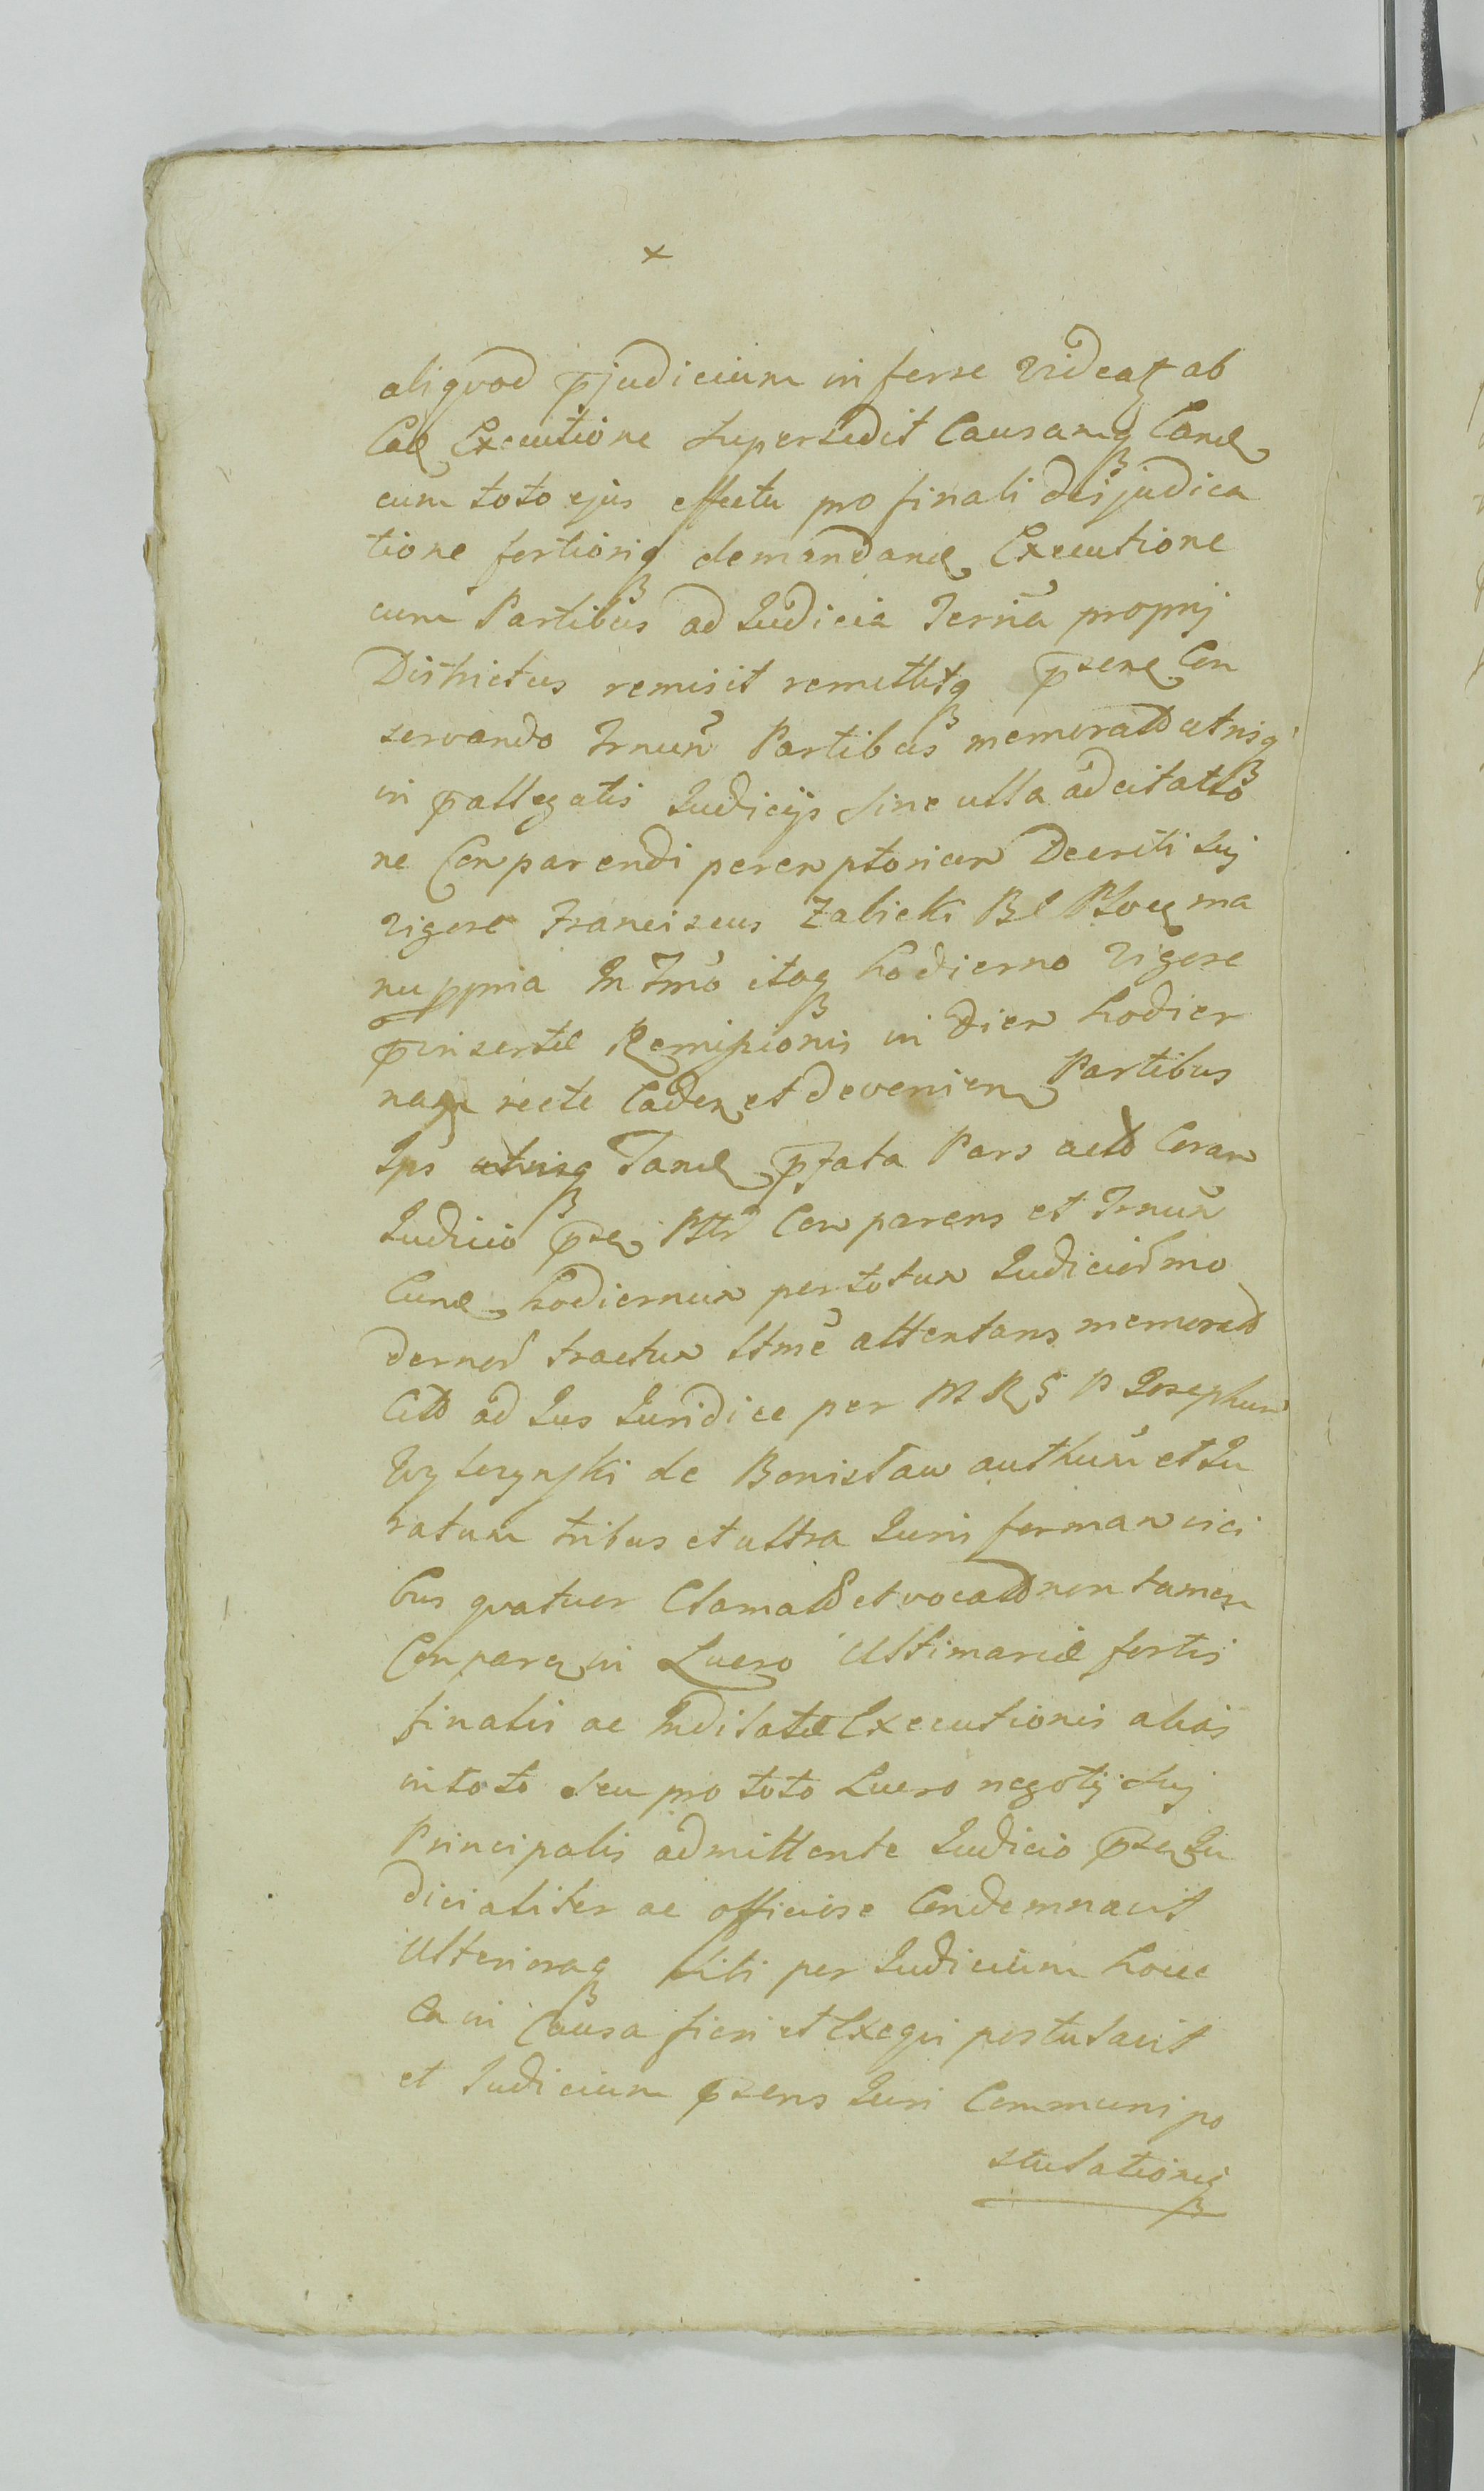 x
aliqvod p̄judicium in ferre videat ab
Ead Executione Supersedit Causamq Eand
cum toto ejus effectu pro finali disjudica
tione fortiorisq demandand Executione
cum Partibus ad Judicia Termā proprij
Districtus remisit remittitq p̄sens Con
servando Trnum Partibus memoratt utrisq
in p̄allegatis Judicijs sine ulla adcitatio
ne Comparendi peremptorium Decreti sui
vigore Franciscus Zabicki B P Plocq ma
nu ppria In Trno itaq hodierno vigore
p̄insertæ Remissionis in Diem hodier
nam recte Caden et devenien Partibus
Ips utrisq Tand p̄fata Pars actt Coram
Judicio p̄sen Pttr Comparens et Trnum
Eund hodiernum pertotum Judicior mo
dernor tractum ltme attentans memoratt
Citt ad Jus Juridice per M R S P Josephum
de Bonislaw authum et Ju
ratum tribus et ultra Juris formam vici
bus qvatuor Clamatt et vocatt non tamen
Comparen in Lucro Ultimariæ fortis
finalis ac Inditatæ Executionis alias
in toto seu pro toto Lucro negotij sui
Principalis admittente Judicio p̄sen Ju
dicialiter ac officiose Condemnavit
Ulterioraq sibi per Judicium hocce
Ea in Causa fieri et Exeqvi postulavit
et Judicium p̄sens Juri Communi po
stulationiq